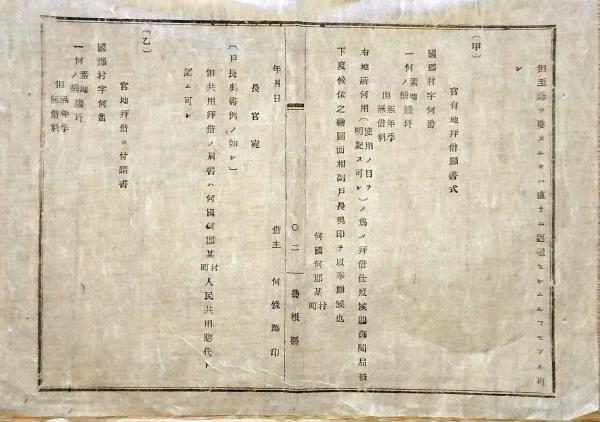 但至急ヲ要スルモノハ直チニ返還セシムルコモアル可
シ
(甲)
官有地拜借願書式
國郡村字何番
一何ノ素地幾坪
但無年季借料
右地所何用(使用ノ目ヲ明記ス可シ)ノ爲メ拜借仕度候間御聞屆被
下度候依之繪圖面相副戸長奥印ヲ以奉願候也
何國何郡某村町
借主 何條路印
年月日
長官宛
○二
島根縣
(戸長奥書例ノ如シ)
但共用拜借ノ肩書ハ何國何郡某村町人民共用惣代ト
記ム可シ
(乙)
官地拜借ニ付請書
國郡村字何番
一何ノ素地幾坪
但無年季借料